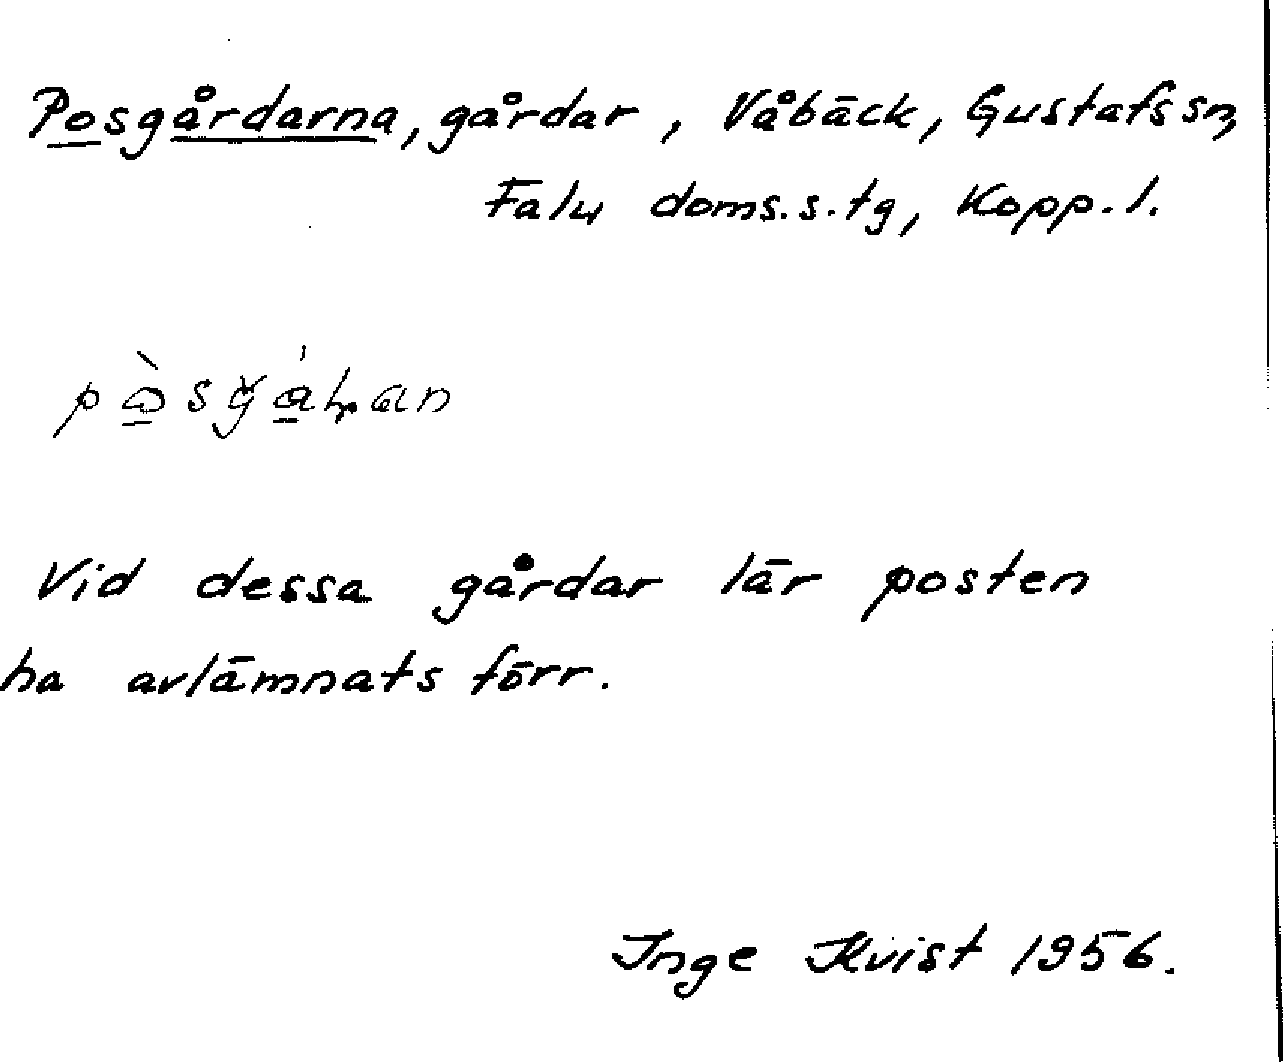 Posgårdarna, gårdar, Våbäck, Gustafs sn,
Falu doms.s.tg, Kopp.l.
Vid dessa gårdar lär posten
ha avlämnats förr.
Inge Kvist 1956.